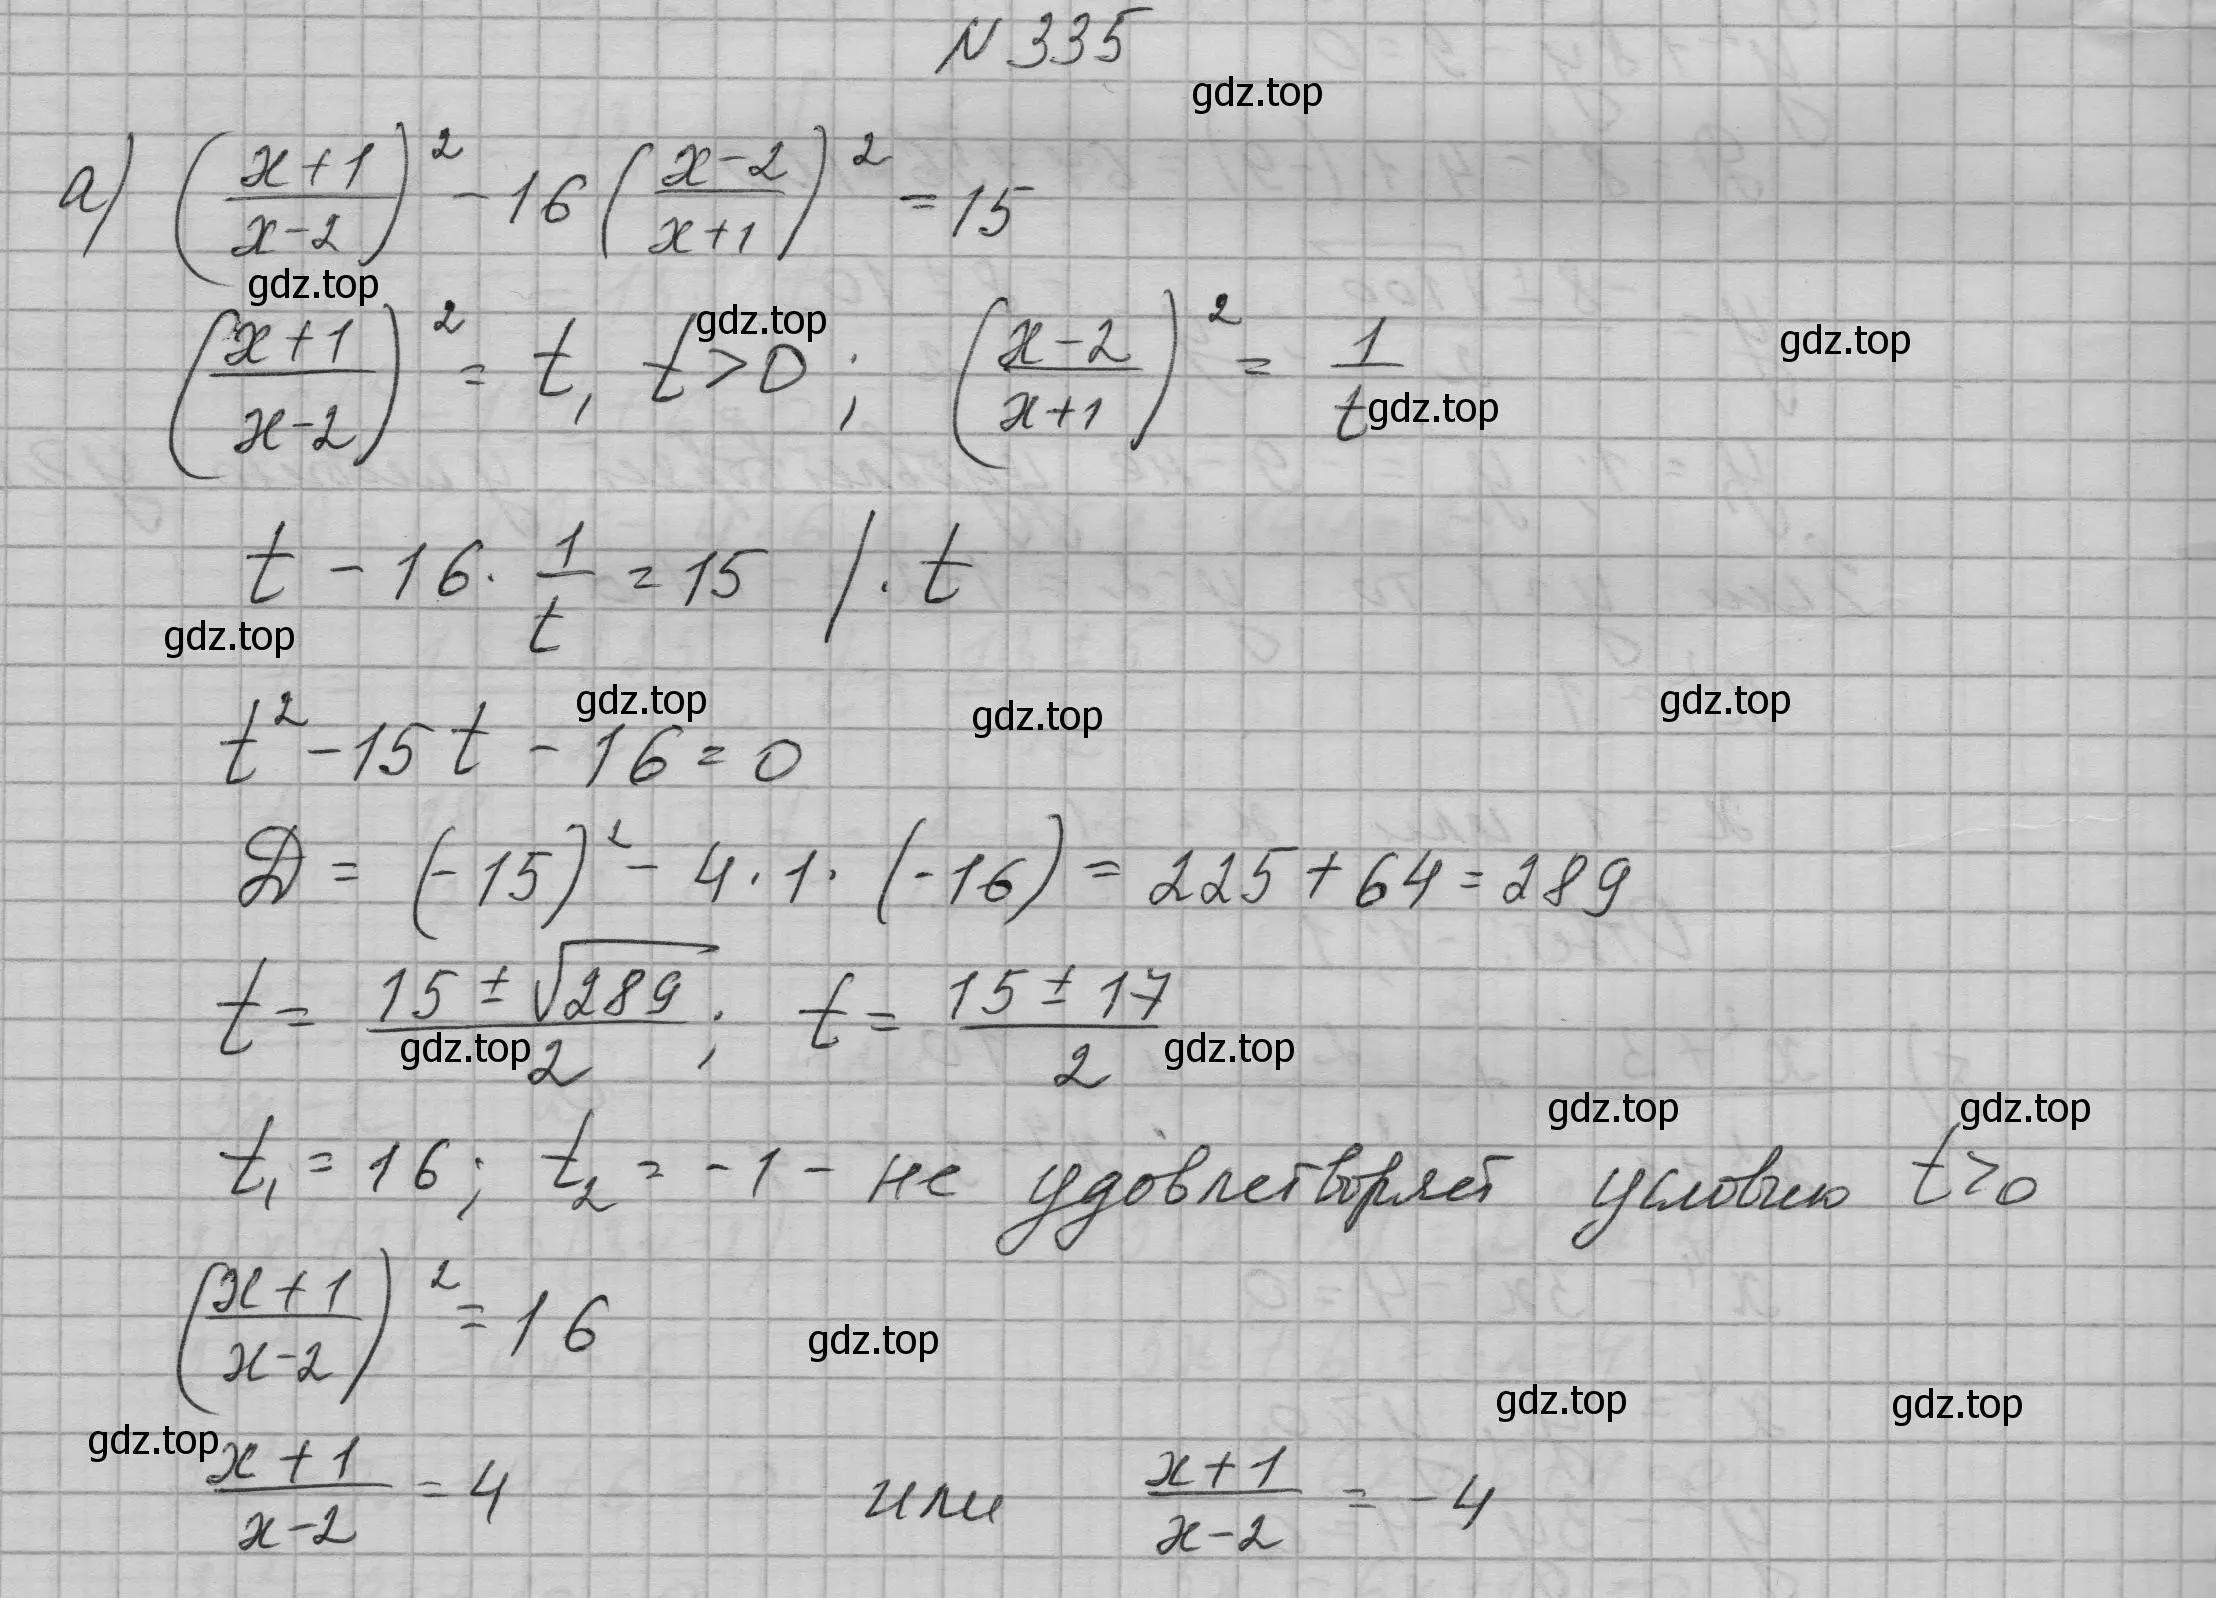 N 335
gdz.top
а) ((x+1)/(x-2))² - 16((x-2)/(x+1))² = 15
gdz.top gdz.top
((x+1)/(x-2))² = t, t>0; ((x-2)/(x+1))² = 1/t
gdz.top gdz.top
t - 16·1/t = 15 /·t
gdz.top
gdz.top gdz.top gdz.top
t² - 15t - 16 = 0
D = (-15)² - 4·1·(-16) = 225 + 64 = 289
t = (15 ± √289)/2; t = (15 ± 17)/2
gdz.top gdz.top
gdz.top gdz.top
t₁ = 16; t₂ = -1 - не удовлетворяет условию t>0
((x+1)/(x-2))² = 16
gdz.top
gdz.top gdz.top gdz.top
(x+1)/(x-2) = 4 или (x+1)/(x-2) = -4